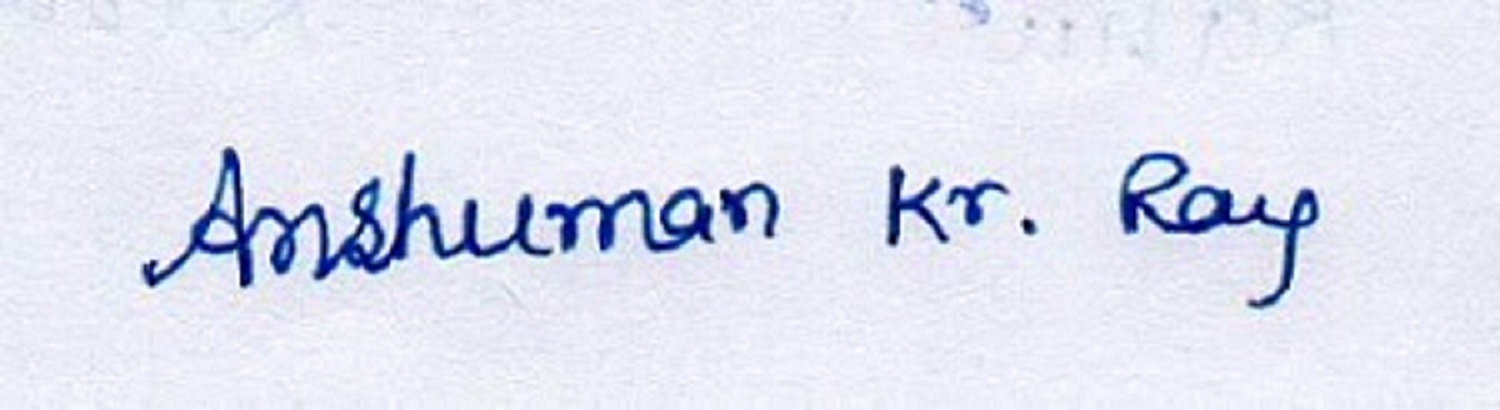 Anshuman Kr. Ray